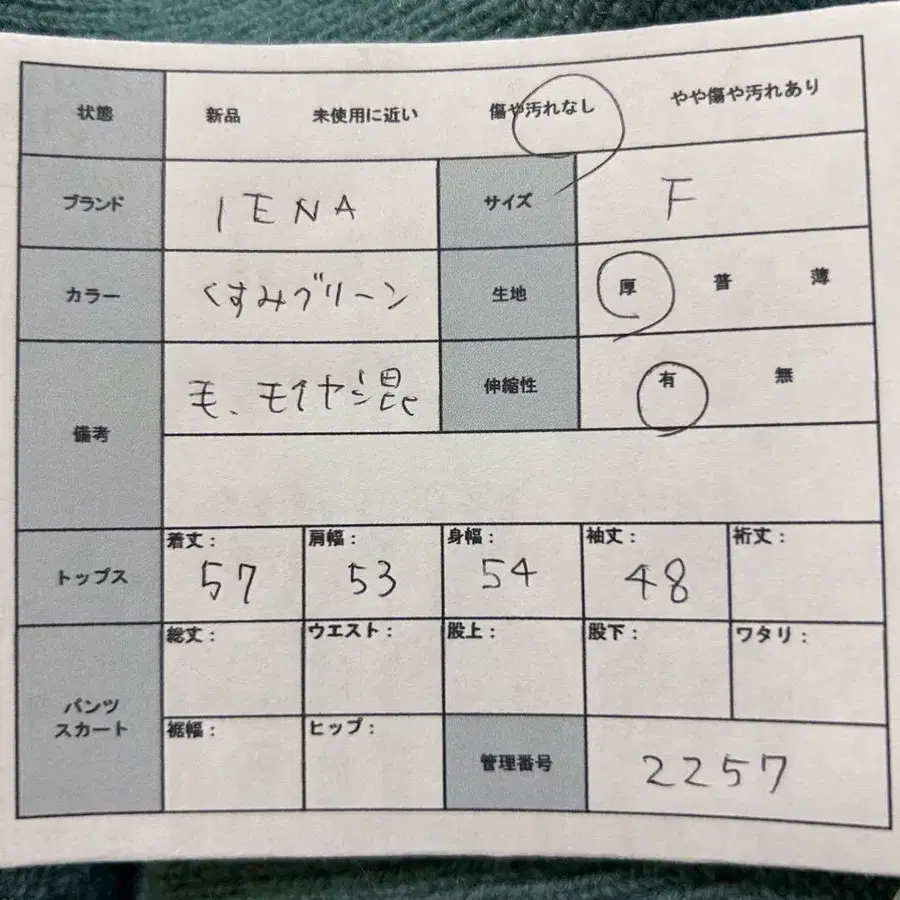 状態 新品 未使用に近い 傷や汚れなし やや傷や汚れあり
ブランド IENA サイズ F
カラー くすみグリーン 生地 厚 普 薄
備考 毛、モヘヤ混 伸縮性 有 無
トップス 着丈: 57 肩幅: 53 身幅: 54 袖丈: 48 裄丈:
パンツ スカート 総丈: ウエスト: 股上: 股下: ワタリ:
裾幅: ヒップ: 管理番号 2257